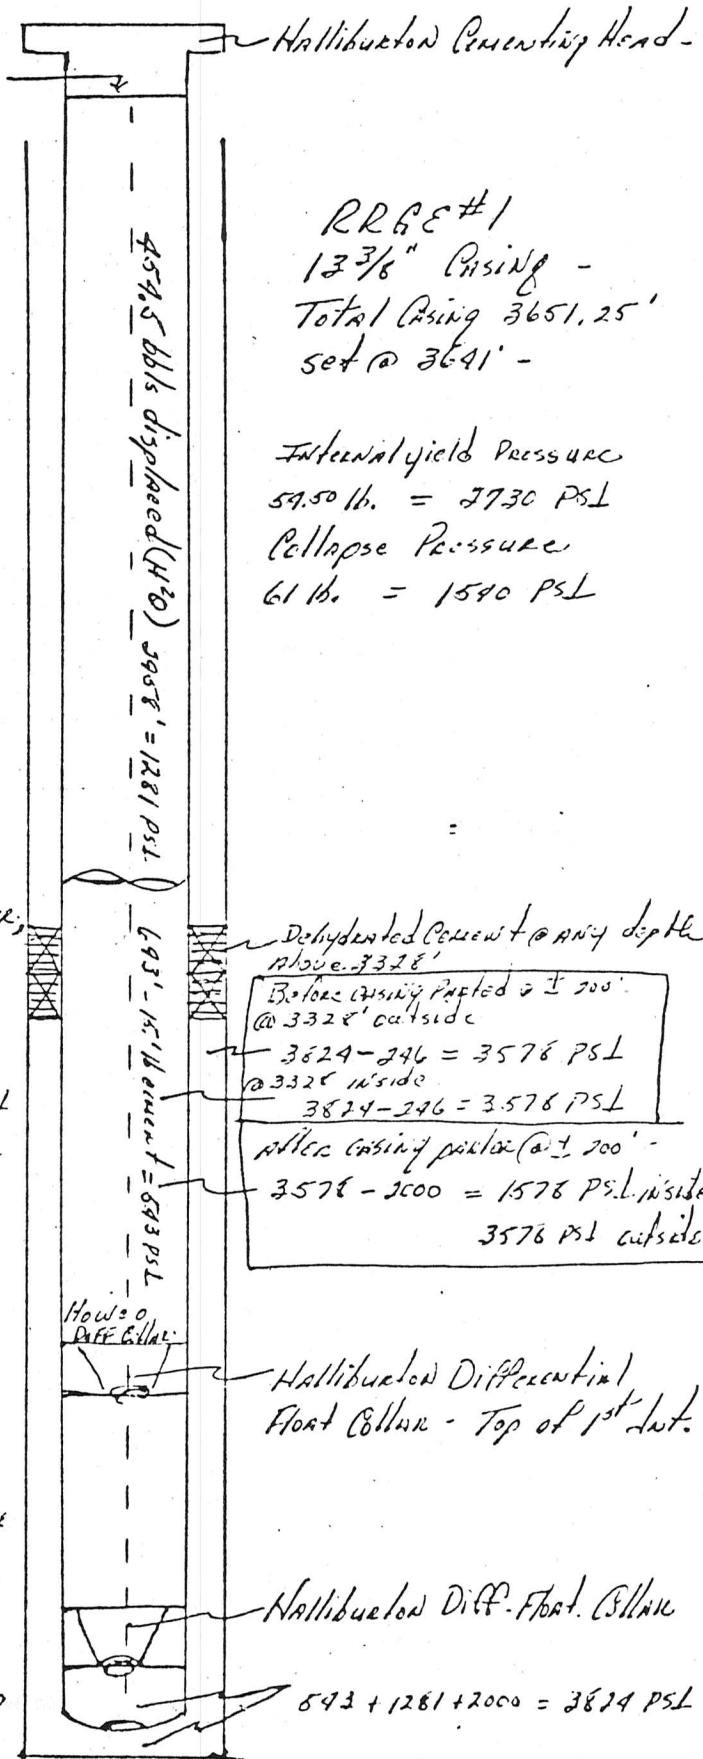 Halliburton Cementing Head -
RRGE #1
13 3/8" Casing -
Total Casing 3651.25'
set @ 3641' -
Internal yield Pressure
54.50 lb. = 2730 PSI
Collapse Pressure
61 lb. = 1540 PSI
454.5 bbls displaced (H²O) 2958' = 1281 PSI
=
Dehydrated Cement @ ANY depth
Above 3328'
Before casing Parted @ ± 200'
@ 3328' outside
3824 - 246 = 3578 PSI
@ 3328 inside
3824 - 246 = 3578 PSI
After casing parted @ ± 200' -
3578 - 2000 = 1578 PSI inside
3578 PSI outside
693' - 15# cement = 543 PSI
Howco
Diff Collar
Halliburton Differential
Float Collar - Top of 1st Jnt.
Halliburton Diff. Float. Collar
543 + 1281 + 2000 = 3824 PSI